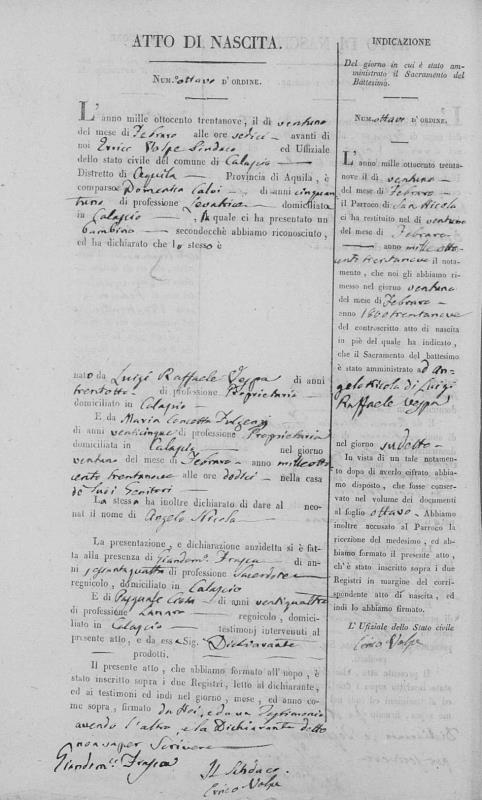 ATTO DI NASCITA.
NUM.º ottavo D'ORDINE.
L'anno mille ottocento trentanove, il dì ventuno
del mese di Febraro alle ore sedici avanti di
noi Errico Volpe Sindaco ed Uffiziale
dello stato civile del comune di Calascio
Distretto di Aquila Provincia di Aquila, è
comparsa Domenica di anni cinquan
tuno di professione Levatrice domiciliata
in Calascio, la quale ci ha presentato un
bambino secondochè abbiamo riconosciuto,
ed ha dichiarato che lo stesso è
nato da Luigi Raffaele Vespa di anni
trentotto di professione Proprietario
domiciliato in Calascio
E da Maria Concetta Fulgenzj
di anni venticinque di professione Proprietaria
domiciliata in Calascio nel giorno
ventuno del mese di Febraro anno mille otto
cento trentanove alle ore dodici nella casa
de suoi Genitori
La stessa ha inoltre dichiarato di dare al neo-
nat il nome di Angelo Nicola
La presentazione, e dichiarazione anzidetta si è fat-
ta alla presenza di Giandom.º Frasca di an-
ni sessantaquattro di professione Sacerdote
regnicolo, domiciliato in Calascio
E di Pasquale di anni ventiquattro
di professione Lanaro regnicolo, domici-
liato in Calascio testimonj intervenuti al
presente atto, e da essa Sig. Dichiarante
prodotti.
Il presente atto, che abbiamo formato all'uopo, è
stato inscritto sopra i due Registri, letto al dichiarante,
ed ai testimoni ed indi nel giorno, mese, ed anno co-
me sopra, firmato da Noi, e da un Testimonio
avendo l'altro, e la Dichiarante detto
non saper Scrivere
Giandom.º Frasca
Il Sindaco
Errico Volpe
INDICAZIONE
Del giorno in cui è stato am-
ministrato il Sacramento del
Battesimo.
NUM. ottavo D'ORDINE.
L'anno mille ottocento trenta-
nove il dì ventuno
del mese di Febraro
il Parroco di San Nicola
ci ha restituito nel dì ventuno
del mese di Febraro
anno mille otto
cento trentanove il nota-
mento, che noi gli abbiamo ri-
messo nel giorno ventuno
del mese di Febraro
anno 1800 trentanove
del controscritto atto di nascita
in piè del quale ha indicato,
che il Sacramento del battesimo
è stato amministrato ad An-
gelo Nicola di Luigi
Raffaele Vespa
nel giorno sudetto
In vista di un tale notamento
dopo di averlo cifrato abbia-
mo disposto, che fosse conser-
vato nel volume dei documenti
al foglio ottavo. Abbiamo
inoltre accusato al Parroco la
ricezione del medesimo, ed ab-
biamo formato il presente atto,
ch'è stato inscritto sopra i due
Registri in margine del corri-
spondente atto di nascita, ed
indi lo abbiamo firmato.
L'Ufiziale dello Stato civile
Errico Volpe